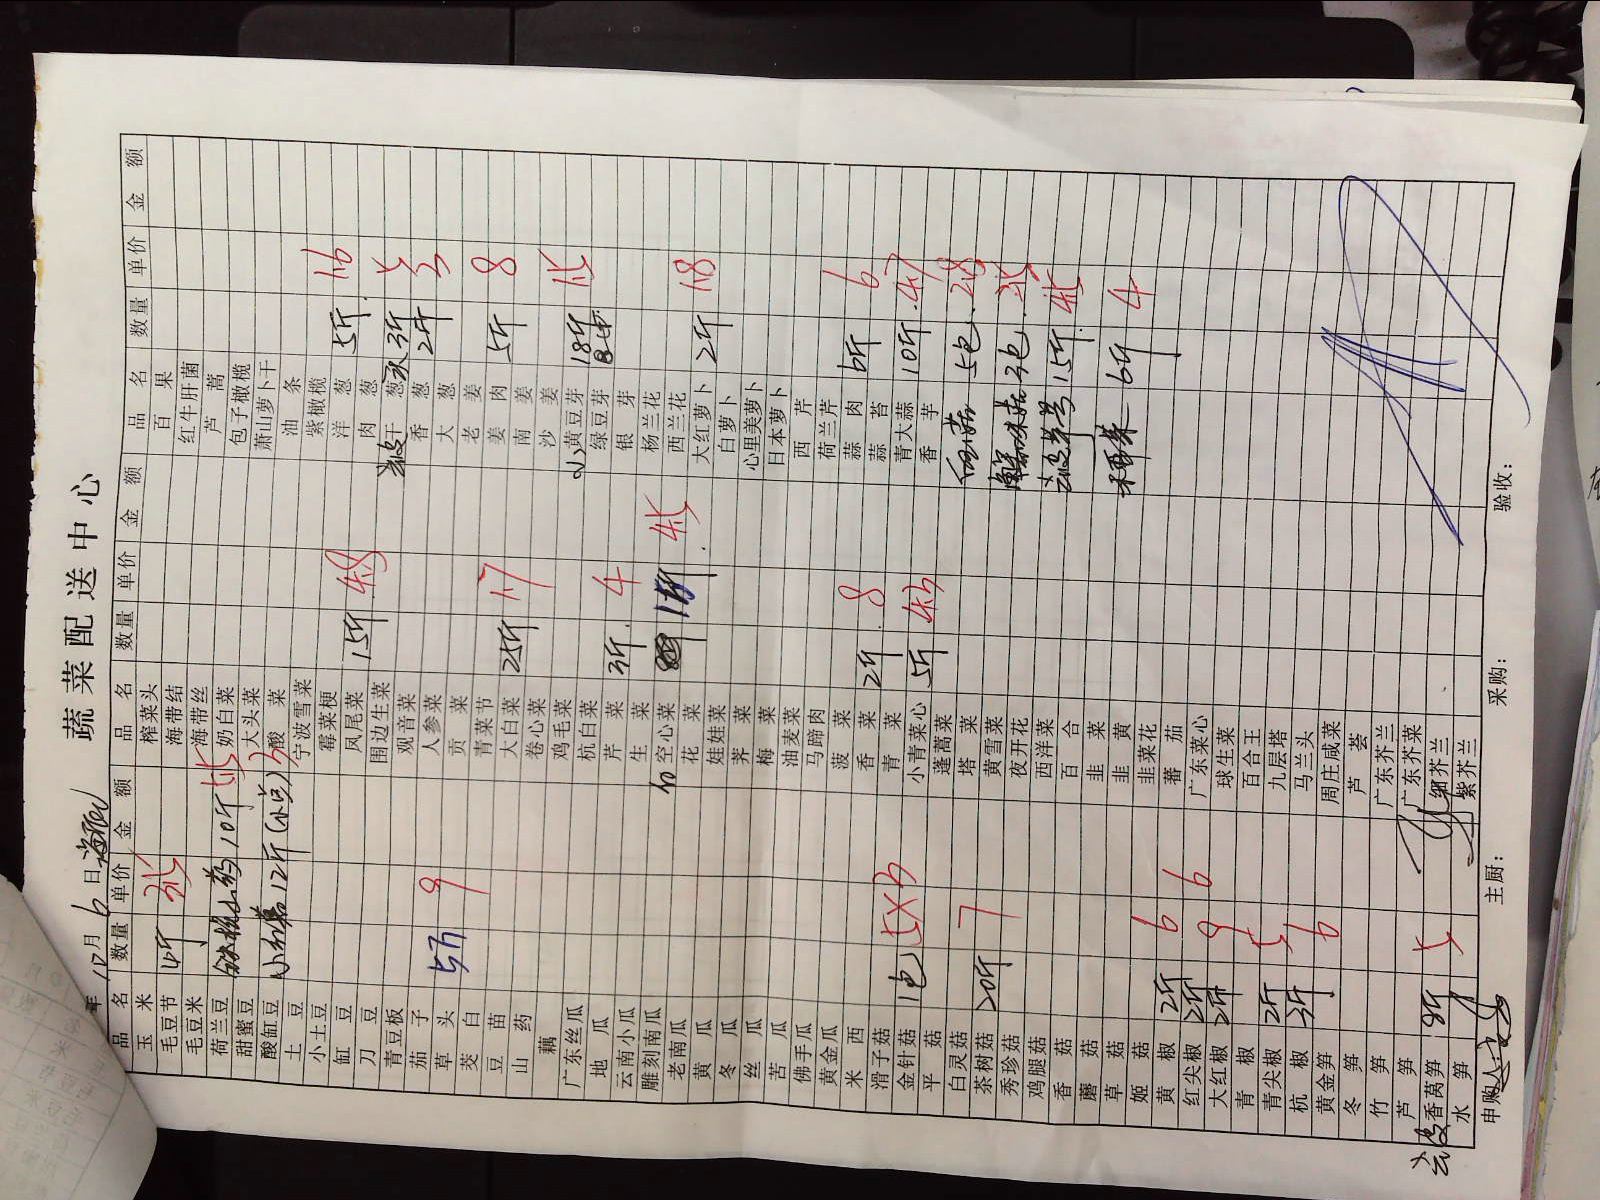 蔬菜配送中心
年 10月 6日
品名 数量 单价 金额 品名 数量 单价 金额 品名 数量 单价 金额
玉米 榨菜头 百果
毛豆节 4斤 3.5 海带结 红牛肝菌
毛豆米 海带丝 芦蒿
荷兰豆 10斤 奶白菜 包子橄榄
甜蜜豆 大头菜 萧山萝卜干
酸缸豆 12斤 酸菜 油条
土豆 宁波雪菜 紫橄榄
小土豆 霉菜梗 洋葱 5斤 1.6
缸豆 凤尾菜 15斤 4.8 肉葱
刀豆 围边生菜 干葱 3斤 5
青豆板 观音菜 香葱 2斤 3
茄子 人参菜 大葱
草头 5斤 9 贡菜 老姜
茭白 青菜节 姜肉 5斤 8
豆苗 大白菜 25斤 1.7 南姜
山药 卷心菜 沙姜
藕 鸡毛菜 小黄豆芽 18斤 1.5
广东丝瓜 杭白菜 绿豆芽
地瓜 芹菜 3斤 4 银芽
云南小瓜 生菜 杨兰花
雕刻南瓜 空心菜 4.5 西兰花
老南瓜 花菜 大红萝卜 2斤 1.8
黄瓜 娃娃菜 白萝卜
冬瓜 荠菜 心里美萝卜
丝瓜 梅菜 日本萝卜
苦瓜 油麦菜 西芹
佛手瓜 马蹄肉 荷兰芹
黄金瓜 菠菜 蒜肉 6斤 6
米西 香菜 2斤 8 蒜苔
滑子菇 青菜 青大蒜 10斤 4.7
金针菇 1包 小青菜心 5斤 4.3 香芋
平菇 蓬蒿菜 5包 2.8
白灵菇 塔菜 3包
茶树菇 20斤 7 黄雪菜 15斤 4.5
秀珍菇 夜开花
鸡腿菇 西洋菜 6斤 4
香菇 百合
蘑菇 韭菜
草菇 韭黄
姬菇 韭菜花
黄椒 2斤 6 蕃茄
红尖椒 2斤 6 广东菜心
大红椒 2斤 9 球生菜
青椒 百合王
青尖椒 2斤 5 九层塔
杭椒 3斤 6 马兰头
黄金笋 周庄咸菜
冬笋 芦荟
竹笋 广东芥兰
芦笋 广东芥菜
香莴笋 8斤 5 细芥兰
水笋 紫芥兰
申购: 主厨: 采购: 验收: